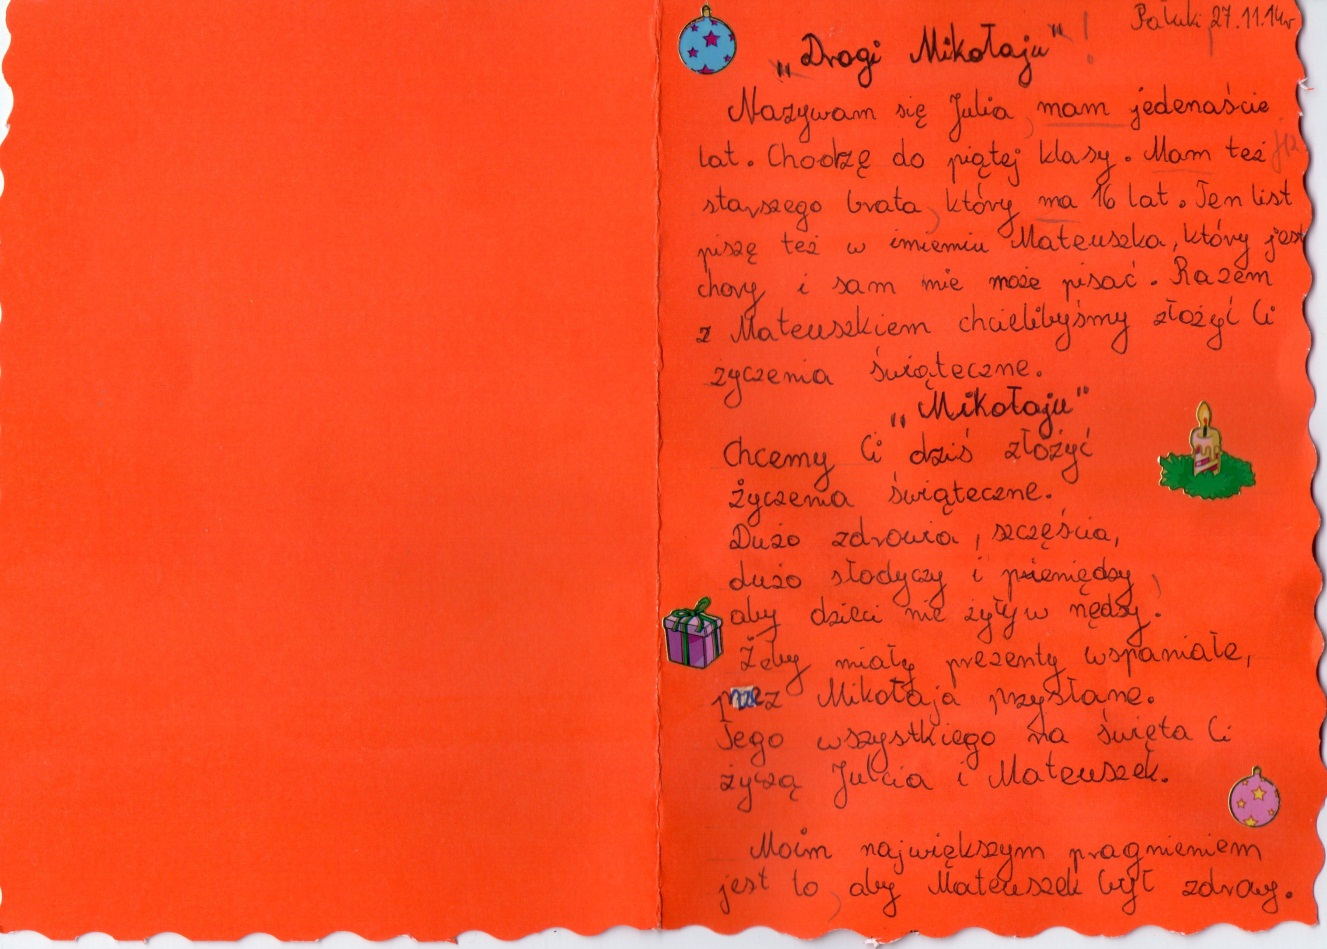 Pałuki 27.11.14r
„Drogi Mikołaju”!
Nazywam się Julia, mam jedenaście
lat. Chodzę do piątej klasy. Mam też
starszego brata, który ma 16 lat. Ten list
piszę też w imieniu Mateuszka, który jest
chory i sam nie może pisać. Razem
z Mateuszkiem chcielibyśmy złożyć Ci
życzenia świąteczne.
„Mikołaju”
Chcemy Ci dziś złożyć
życzenia świąteczne.
Dużo zdrowia, szczęścia,
dużo słodyczy i pieniędzy,
aby dzieci nie żyły w nędzy.
Żeby miały prezenty wspaniałe,
przez Mikołaja przysłane.
Tego wszystkiego na święta Ci
życzą Julcia i Mateuszek.
Moim największym pragnieniem
jest to, aby Mateuszek był zdrowy.